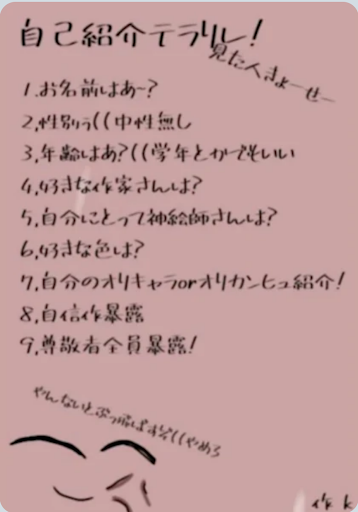 自己紹介テラリレ!
見た人きょーせー
1.お名前はあ~?
2,性別ぅ((中性無し
3,年齢はあ?((学年とかでもいい
4,好きな作家さんは?
5,自分にとって神絵師さんは?
6,好きな色は?
7,自分のオリキャラorオリカンヒュ紹介!
8,自信作暴露
9,尊敬者全員暴露!
やんないとぶっ飛ばす((やめろ
作 k